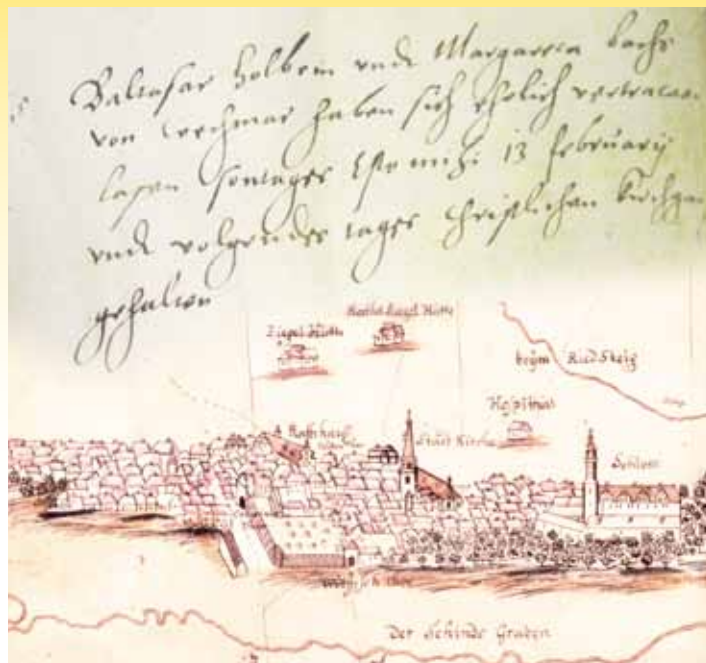 Baltasar Holbein undt Margareta Bachs
von Wechmar haben sich ehelich vertrawen
lasen Sontages Esto mihi 13 february
undt volgendes tages christlichen Kirchgan
gehalten
Ziegel Hütte
Ziegel Hütte
beym Ried Steig
Hospithal
A Rathhauß
Stadt Kirche
Schloss
Der Schinde Graben